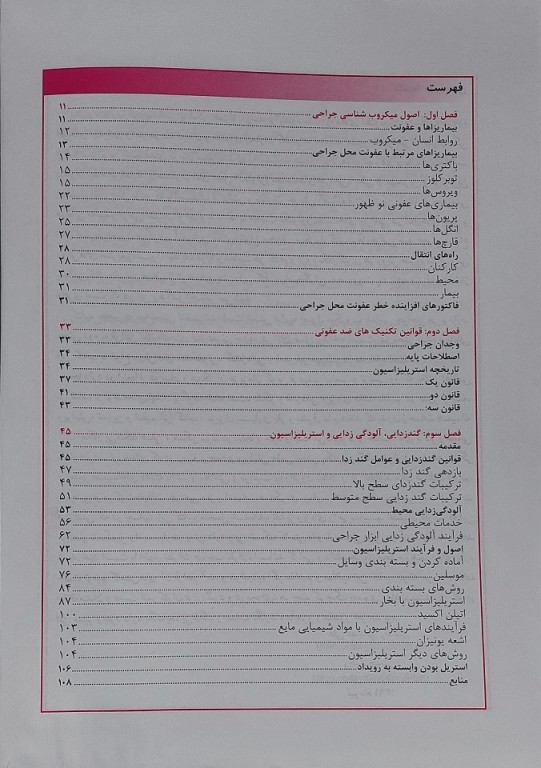 فهرست
فصل اول: اصول میکروب شناسی جراحی ۱۱
بیماریزاها و عفونت ۱۱
روابط انسان - میکروب ۱۲
بیماریزاهای مرتبط با عفونت محل جراحی ۱۳
باکتری‌ها ۱۴
توبرکلوز ۱۵
ویروس‌ها ۱۵
بیماری‌های عفونی نو ظهور ۲۲
پریون‌ها ۲۳
انگل‌ها ۲۵
قارچ‌ها ۲۷
راه‌های انتقال ۲۸
کارکنان ۲۸
محیط ۳۰
بیمار ۳۱
فاکتورهای افزاینده خطر عفونت محل جراحی ۳۱
فصل دوم: قوانین تکنیک های ضد عفونی ۳۳
وجدان جراحی ۳۳
اصطلاحات پایه ۳۴
تاریخچه استریلیزاسیون ۳۴
قانون یک ۳۷
قانون دو ۴۱
قانون سه ۴۳
فصل سوم: گندزدایی، آلودگی زدایی و استریلیزاسیون ۴۵
مقدمه ۴۵
قوانین گندزدایی و عوامل گند زدا ۴۵
بازدهی گند زدا ۴۷
ترکیبات گندزدای سطح بالا ۴۹
ترکیبات گند زدایی سطح متوسط ۵۱
آلودگی‌زدایی محیط ۵۳
خدمات محیطی ۵۶
فرآیند آلودگی زدایی ابزار جراحی ۶۲
اصول و فرآیند استریلیزاسیون ۷۲
آماده کردن و بسته بندی وسایل ۷۲
موسلین ۷۶
روش‌های بسته بندی ۸۴
استریلیزاسیون با بخار ۸۷
اتیلن اکسید ۱۰۰
فرآیندهای استریلیزاسیون با مواد شیمیایی مایع ۱۰۳
اشعه یونیزان ۱۰۴
روش‌های دیگر استریلیزاسیون ۱۰۴
استریل بودن وابسته به رویداد ۱۰۶
منابع ۱۰۸